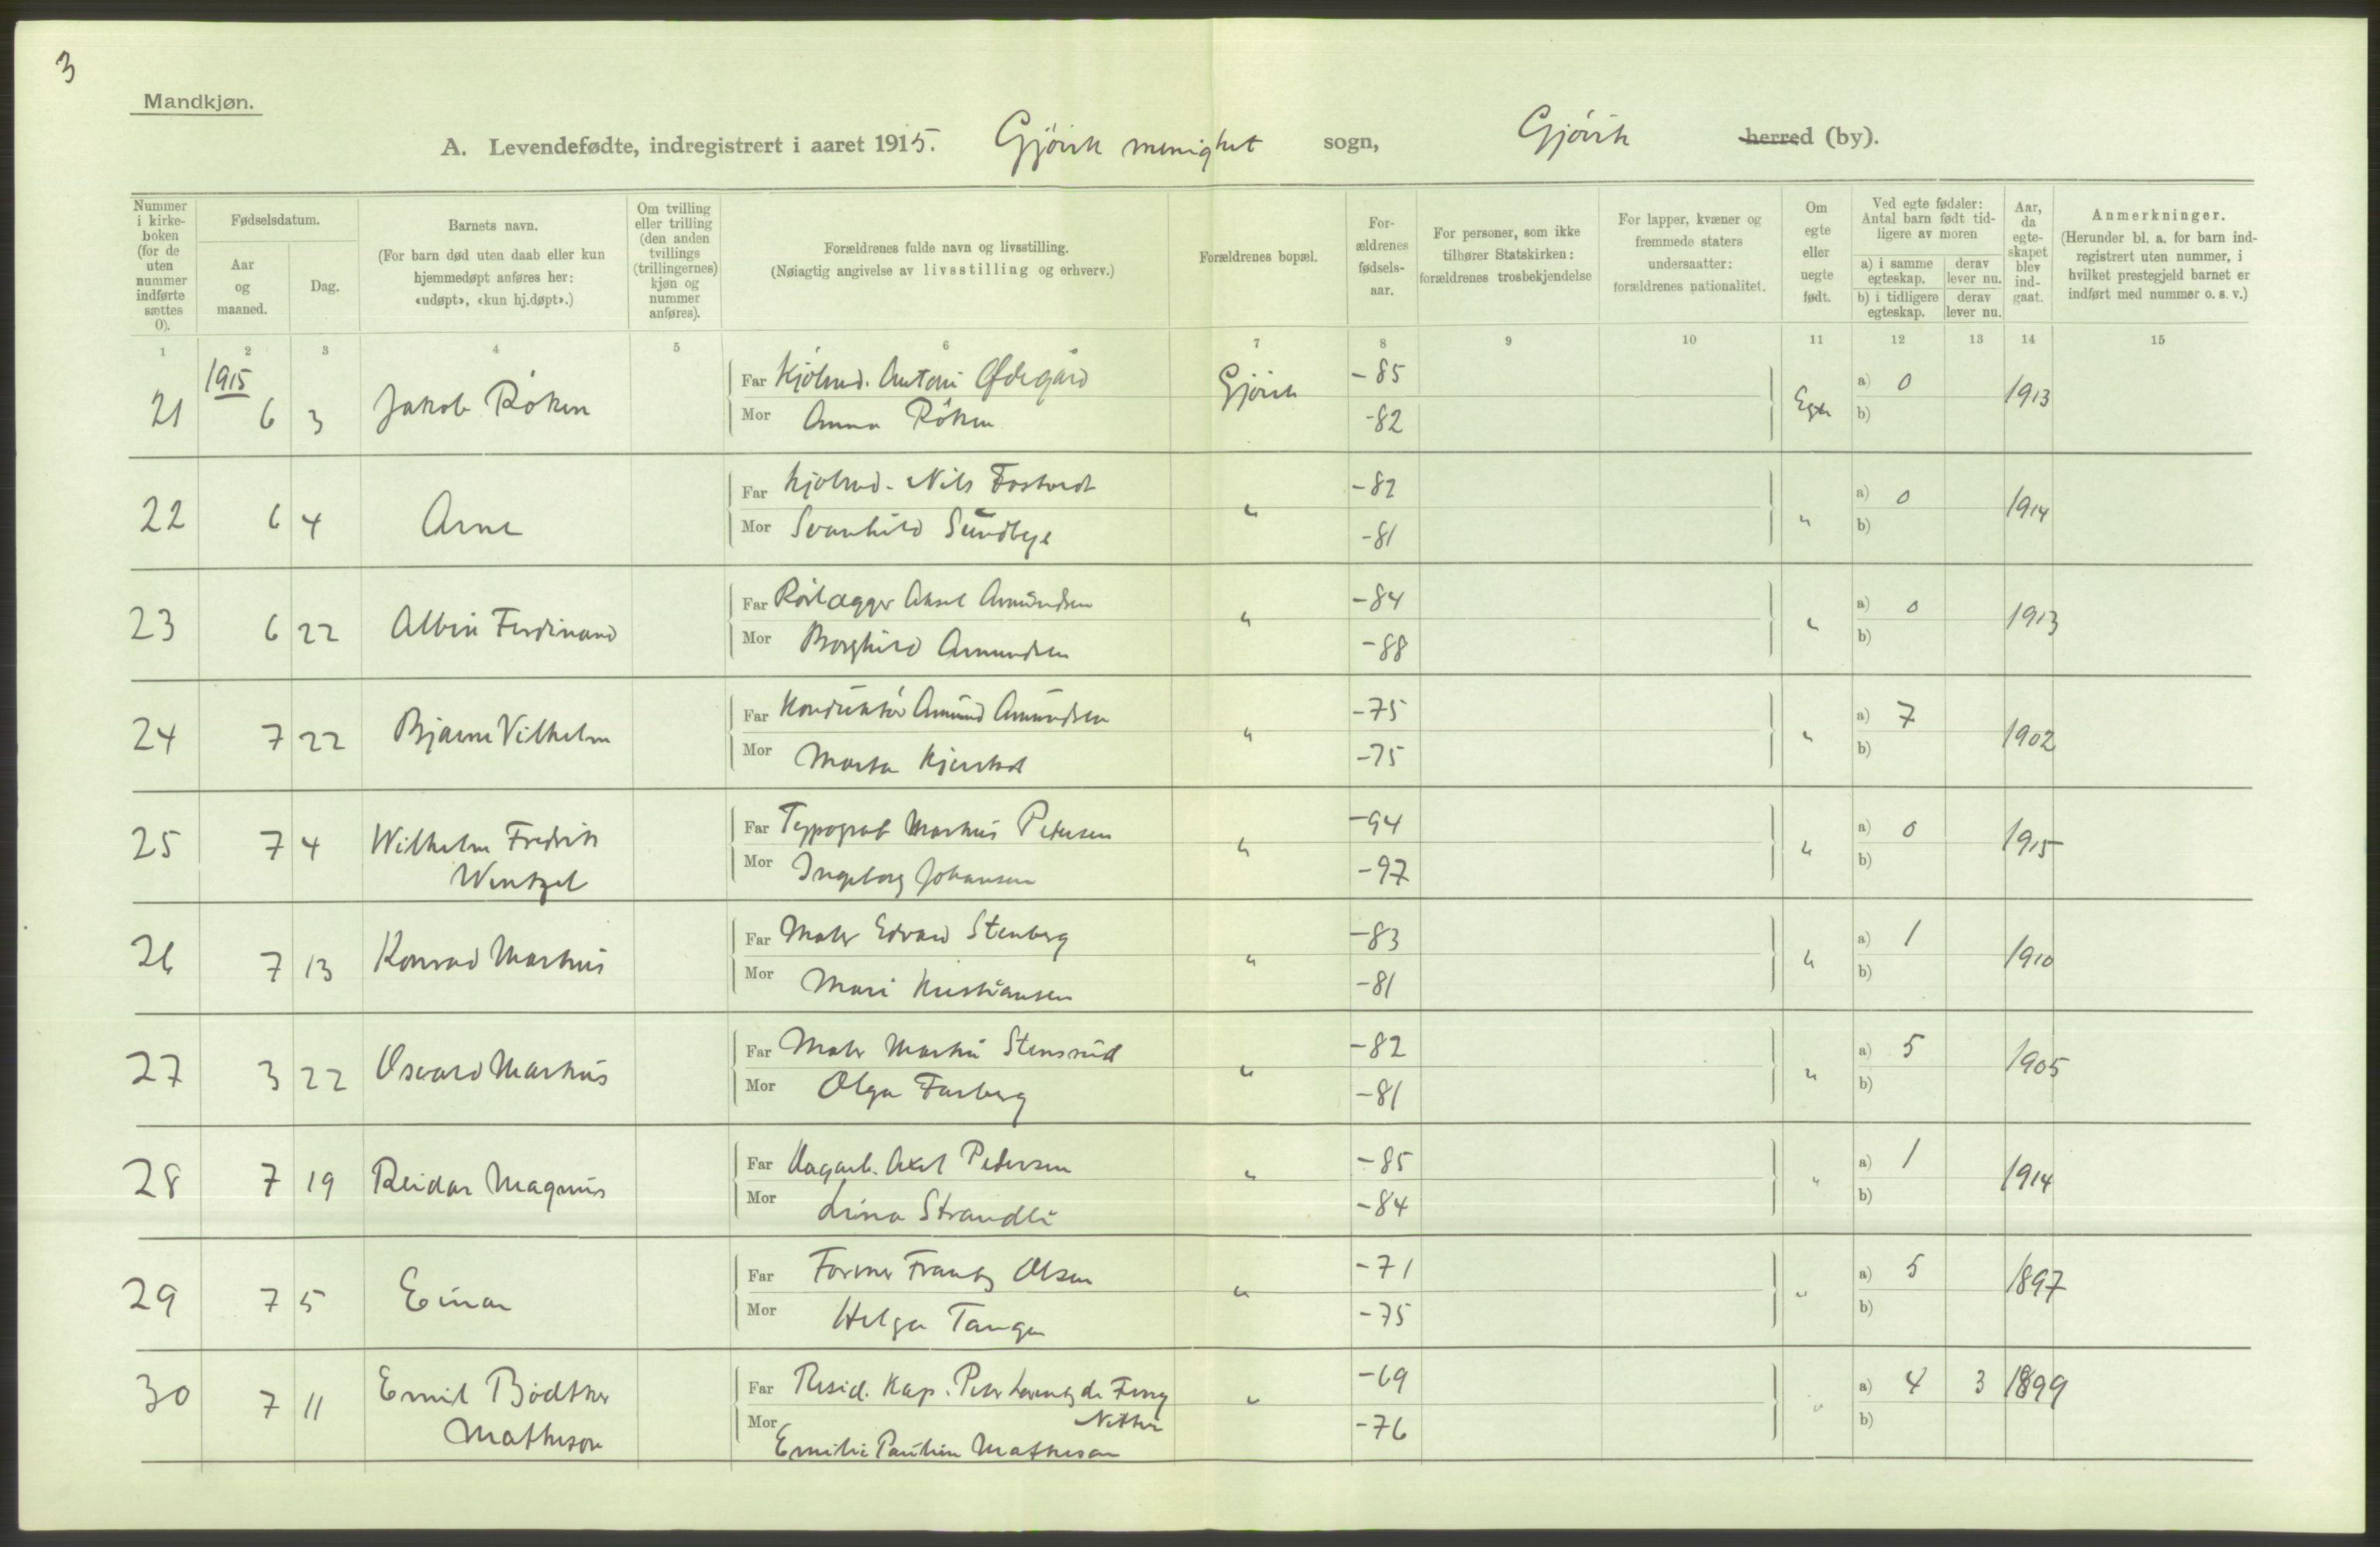 3
Mandkjøn.
A. Levendefødte, indregistrert i aaret 1915. Gjövik menighet sogn, Gjövik herred (by).
Nummer i kirke-boken (for de uten nummer indførte sættes 0).
Fødselsdatum.
Aar og maaned.
Dag.
Barnets navn.
(For barn død uten daab eller kun hjemmedøpt anføres her: «udøpt», «kun hj.døpt».)
Om tvilling eller trilling (den anden tvillings (trillingernes) kjøn og nummer anføres).
Forældrenes fulde navn og livsstilling.
(Nøiagtig angivelse av livsstilling og erhverv.)
Forældrenes bopæl.
For-ældrenes fødsels-aar.
For personer, som ikke tilhører Statskirken: forældrenes trosbekjendelse
For lapper, kvæner og fremmede staters undersaatter: forældrenes nationalitet.
Om egte eller uegte født.
Ved egte fødsler: Antal barn født tid-ligere av moren
a) i samme egteskap.
derav lever nu.
b) i tidligere egteskap.
derav lever nu.
Aar, da egte-skapet blev ind-gaat.
Anmerkninger.
(Herunder bl. a. for barn ind-registrert uten nummer, i hvilket prestegjeld barnet er indført med nummer o. s. v.)
1 2 3 4 5 6 7 8 9 10 11 12 13 14 15
1915
21 6 3 Jakob Röken Far Kjölmd. Antoni Ødegård Gjövik -85 Egte a) 0 1913
Mor Anna Röken -82 b)
22 6 4 Arne Far Kjölmd. Nils -82 " a) 0 1914
Mor Svanhild Sundbye -81 b)
23 6 22 Albin Ferdinand Far Rörlægger Aksel Amundsen " -84 " a) 0 1913
Mor Borghild Amundsen -88 b)
24 7 22 Bjarne Vilhelm Far Konduktör Amund Amundsen " -75 " a) 7 1902
Mor Marta -75 b)
25 7 4 Wilhelm Fredrik Far Typograf Markus Petersen " -94 " a) 0 1915
Wentzel Mor Ingeborg Johansen -97 b)
26 7 13 Konrad Markus Far Maler Edvard Stenberg " -83 " a) 1 1910
Mor Mari Kristiansen -81 b)
27 3 22 Osvard Markus Far Maler Martin Stensrud " -82 " a) 5 1905
Mor Olga Farberg -81 b)
28 7 19 Reidar Magnus Far Axel Pedersen " -85 " a) 1 1914
Mor Lina Strandli -84 b)
29 7 5 Einar Far Former Frantz Olsen " -71 " a) 5 1897
Mor Helga Tangen -75 b)
30 7 11 Emil Bödtker Far Resid. Kap. Peter Lorentz de Ferry " -69 " a) 4 3 1899
Matheson Mor -76 b)
Emilie Pauline Matheson